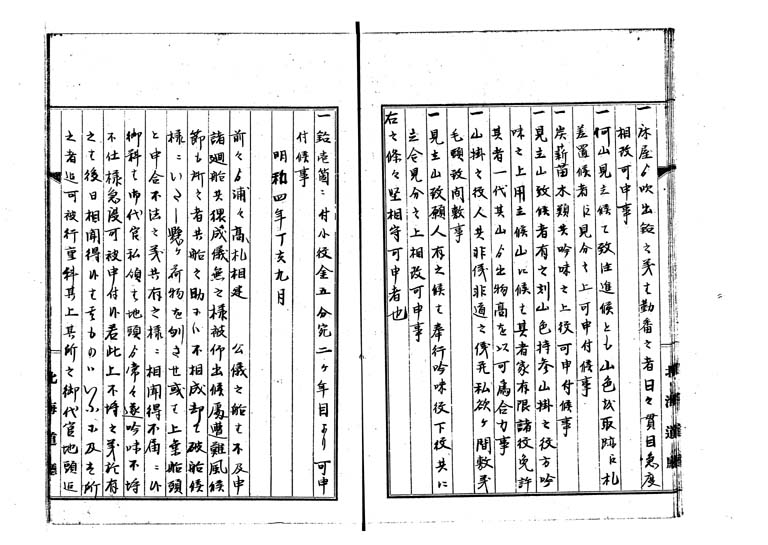 一床屋ゟ吹出鉛之義も勤番之者日々貫目急度
相改可申事
一何山見立候て致注進候とも山色試取跡ニ札
差置候者ニ見分之上可申付候事
一炭薪苗木類共吟味之上役可申付候事
一見立山致候者有之列山色持参山掛之役方吟
味之上用立候山ニ候てハ其者家有限諸役免許
其者一代其山ゟ出物高を以可為合力事
一山掛之役人共非儀非道之儀私欲ヶ間敷義
毛頭致間敷事
一見立山致願人有之候てハ奉行吟味役下役共ニ
立合見分之上相改可申事
右之條々堅相守可申者也
北海道廳
一鉛壱箇ニ付小役金五分宛二ヶ年目ゟ可申
付候事
明和四年丁亥九月
前々ゟ浦々高札相建 公儀之船ハ不及申
諸廻船共猥成儀無之様被仰出候處遭難風候
節も所之者共船之助ニ不相成却て破船候
様ニいたし懸ヶ荷物を刎させ或ハ上乗船頭
と申合不法之義共有之様ニ相聞得不届ニ付
御料ハ御代官私領ハ地頭ゟ常々遂吟味不埒
不仕様急度可被申付候若此上不埒之義於有
之ハ後日相聞得候共其もの
之者迄可被行重科其上其所之御代官地頭迄
北海道廳